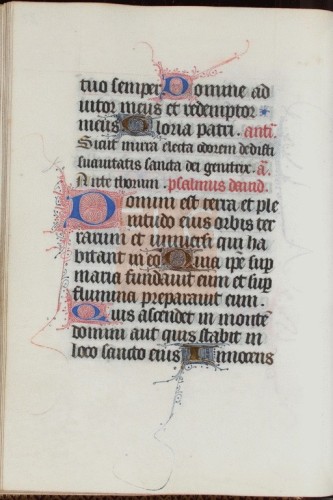 tuo semper Domine ad
iutor meus et redemptor
meus Gloria patri. antiᵃ.
Sicut mirra electa odorem dedisti
suavitatis sancta dei genitrix. aͣ.
Ante thorum. psalmus david.
Domini est terra et ple
nitudo eius orbis ter
rarum et universi qui ha
bitant in eo Quia ip̄e sup̄
maria fundavit eum et sup̄
flumina preparavit eum.
Quis ascendet in montē
domini aut quis stabit in
loco sancto eius Innocens